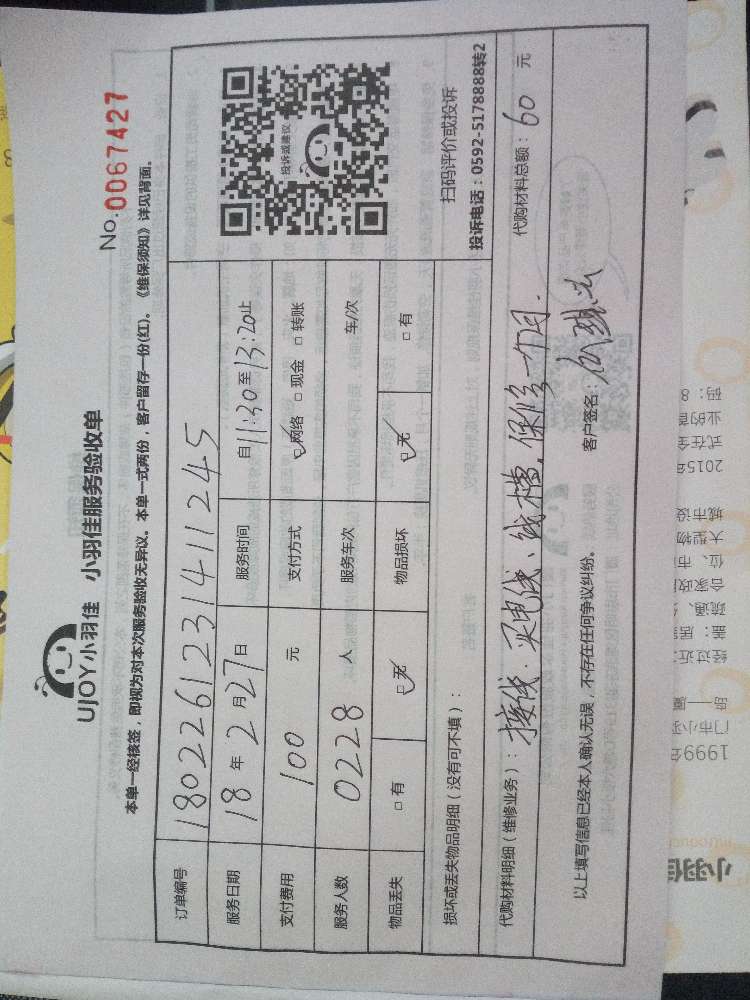 UJOY小羽佳 小羽佳服务验收单
No.0067427
本单一经核签，即视为对本次服务验收无异议。本单一式两份，客户留存一份(红)。《维保须知》详见背面。
订单编号 180226123141245
服务日期 18 年 2 月 27 日 服务时间 自 11:30 至 13:20 止
支付费用 100 元 支付方式 网络 现金 转账
服务人数 0228 人 服务车次 车/次
物品丢失 有 无 物品损坏 无 有
投诉或建议
损坏或丢失物品明细（没有可不填）：
扫码评价或投诉
投诉电话：0592-5178888转2
代购材料明细（维修业务）：接线、买电线、线槽，保修一个月.
代购材料总额：60 元
以上填写信息已经本人确认无误，不存在任何争议纠纷。
客户签名：
小羽佳
1999
门市小羽
经过近
盖：居
疏通、
合家政
位、市
大型物
城市设
2015
式在全
业的首
码：8